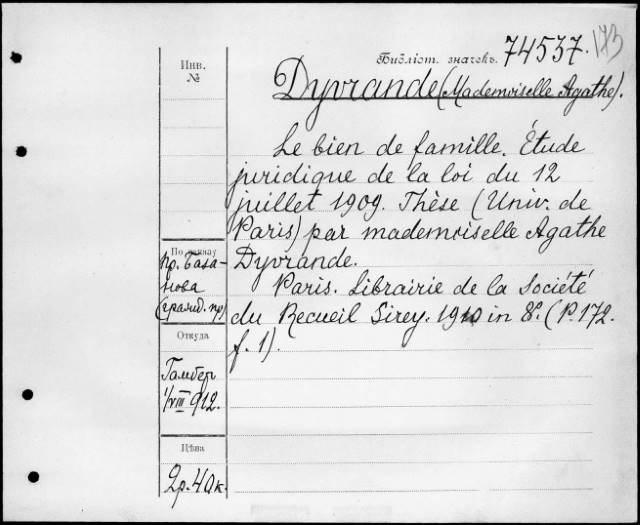 Библіот. значекъ. 74537. 173
Инв.
№
Dyvrande (Mademoiselle Agathe).
Le bien de famille. Étude
juridique de la loi du 12
juillet 1909. Thèse (Univ. de
Paris) par mademoiselle Agathe
Dyvrande.
Paris. Librairie de la Société
du Recueil Sirey. 1910 in 8º. (P. 172.
f. 1).
По заказу
пр. База-
нова
(гражд. пр)
Откуда
Гамбер
1/VIII 912.
Цѣна
2р. 40к.